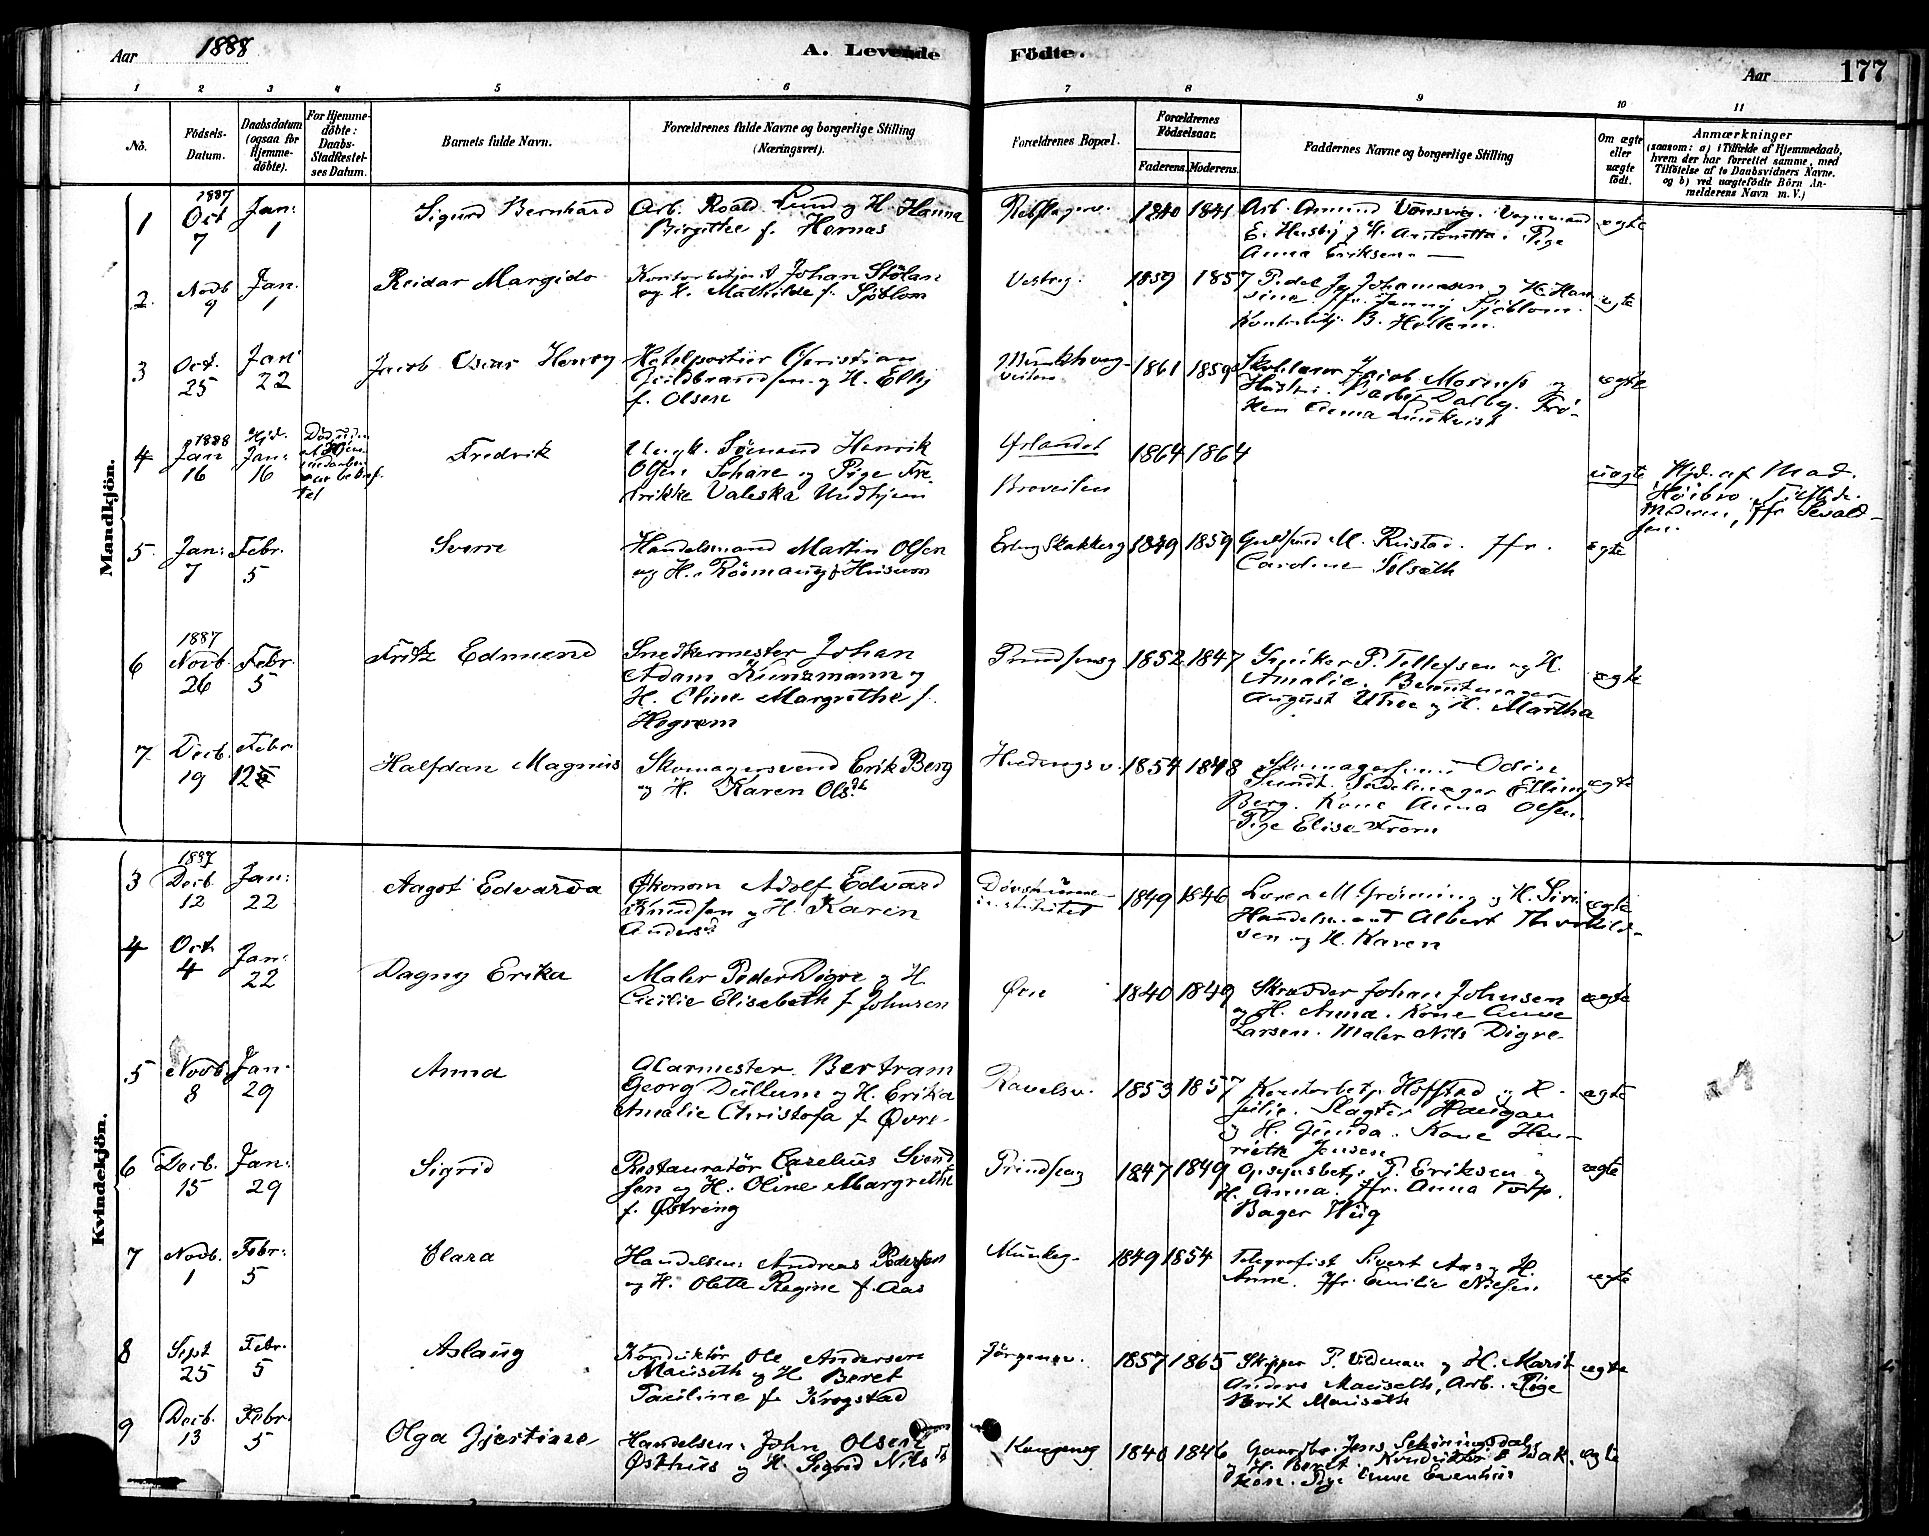 Aar 1888
A. Levende Födte.
Aar 177
1 2 3 4 5 6 7 8 9 10 11
No.
Födsels-Datum.
Daabsdatum (ogsaa for Hjemmedöbte).
For Hjemmedöbte: Daabs-Stadfæstelses Datum.
Barnets fulde Navn.
Forældrenes fulde Navne og borgerlige Stilling (Næringsvei).
Forældrenes Bopæl.
Forældrenes Födselsaar.
Faderens. Moderens.
Faddernes Navne og borgerlige Stilling
Om ægte eller uægte födt.
Anmærkninger (saasom: a) i Tilfælde af Hjemmedaab, hvem der har forrettet samme, med Tilföielse af to Daabsvidners Navne, og b) ved uægtefödte Börn Anmelderens Navn m. V.)
Mandkjön.
1 1887 Oct 7 Jan: 1 Sigurd Bernhard
Arb. Roald Lund og H. Hanna
Birgitte f. Hernæs
1840 1841
Arb. Amund
E. Husby og H. Antonette. Pige
Anna Eriksen
ægte
2 Novb 9 Jan. 1 Reidar Margido
Johan Stölan
og H. Mathilde f. Sjöblom
Vestreg. 1859 1857
Pedel J. Johannesen og H. Han
sine. Jfr. Jenny Sjöblom.
Kontorbetj. B. Hollem.
ægte
3 Oct. 25 Jan: 22 Jacob Oscar Henry
Hotelportier Christian
Hildbrandsen og H. Elly
f. Olsen
1861 1859
Skolelærer Jacob Morens og
ægte
4 1888 Jan 16 Hjd. Jan: 16 Fredrik
Sömand Henrik
Olsen Schare og Pige Fre
drikke Valeska Undhjem
Ørlandet
Broveiten
1864 1864
uægte
Hjd. af Mad.
Höibro. Tilst.
Moderen, Jfr Sevald-
sen.
5 Jan: 7 Febr. 5 Sverre
Handelsmand Martin Olsen
og H.
Erling Skakkes g 1849 1859
M. Rustad. Jfr.
Caroline Solseth
ægte
6 1887 Novb. 26 Febr. 5 Fritz Edmund
Snedkermester Johan
Adam Kunzmann og
H. Eline Margrethe f.
Hogrem
Prindsensg 1852 1847
Snikker P. Tellefsen og H.
Amalie.
August Uthee og H. Martha
ægte
7 Decb. 19 Febr 12 Halfdan Magnus
Skomagersvend Erik Berg
og H. Karen Olsdt
1854 1848
Skomagersvend Odin
Sundt. Sadelmager Elling
Berg. Kone Anna Olsen.
Pige Elise From
ægte
Kvindekjön.
3 1887 Decb. 12 Jan: 22 Aagot Edvarda
Økonom Adolf Edvard
Knudsen og H. Karen
Andersd
Døvstumme-
institutet
1849 1846
Lærer M. Grönning og H. Siri
Handelsmand Albert Thorkild-
sen og H. Karen
ægte
4 Oct. 4 Jan: 22 Dagny Erika
Maler Peder Digre og H
Cicilie Elisabeth f Johnsen
Øen 1840 1849
Skrædder Johan Johnsen
og H. Anna. Kone Anne
Larsen. Maler Nils Digre
ægte
5 Novb. 8 Jan. 29 Anna
Glarmester Bertram
Georg Dullum og H. Erika
Amalie Christofa f Øvre
Ravelsv. 1853 1857
Kontorbetj. Hoffstad og H.
Julie. Slagter Haugan
og H. Gunda. Kone Hen-
riette Jensen
ægte
6 Decb. 15 Jan: 29 Sigrid
Restauratör Carelius Svend
sen og H. Oline Margrethe
f. Østring
Prindseng 1847 1849
Opsynsbetj. P. Eriksen og
H. Anna. Jfr. Anna Torp.
Bager Wüg
ægte
7 Novb. 1 Febr: 5 Clara
Handelsm: Andreas Pedersen
og H. Olette Regine f. Aas
Munkeg. 1849 1854
Telegrafist Sivert Aas og H.
Anne. Jfr. Emilie Nielsen
ægte
8 Sept 25 Febr. 5 Aslaug
Konduktör Ole Andersen
Mauseth og H Beret
Pauline f. Krogstad
Jörgensv. 1857 1865
Skipper P. Vidman og H. Marit
Anders Mauseth, Arb. Pige
Marit Mauseth
ægte
9 Decb. 13 Febr. 5 Olga Gjertine
Handelsm: John Olsen
Østhus og H Sigrid Nilsdt
Kongensg 1840 1846
Gaardbr. Jens
og H. Beret. Konduktör E Bak
ken. Pige Anne Evenhus
ægte